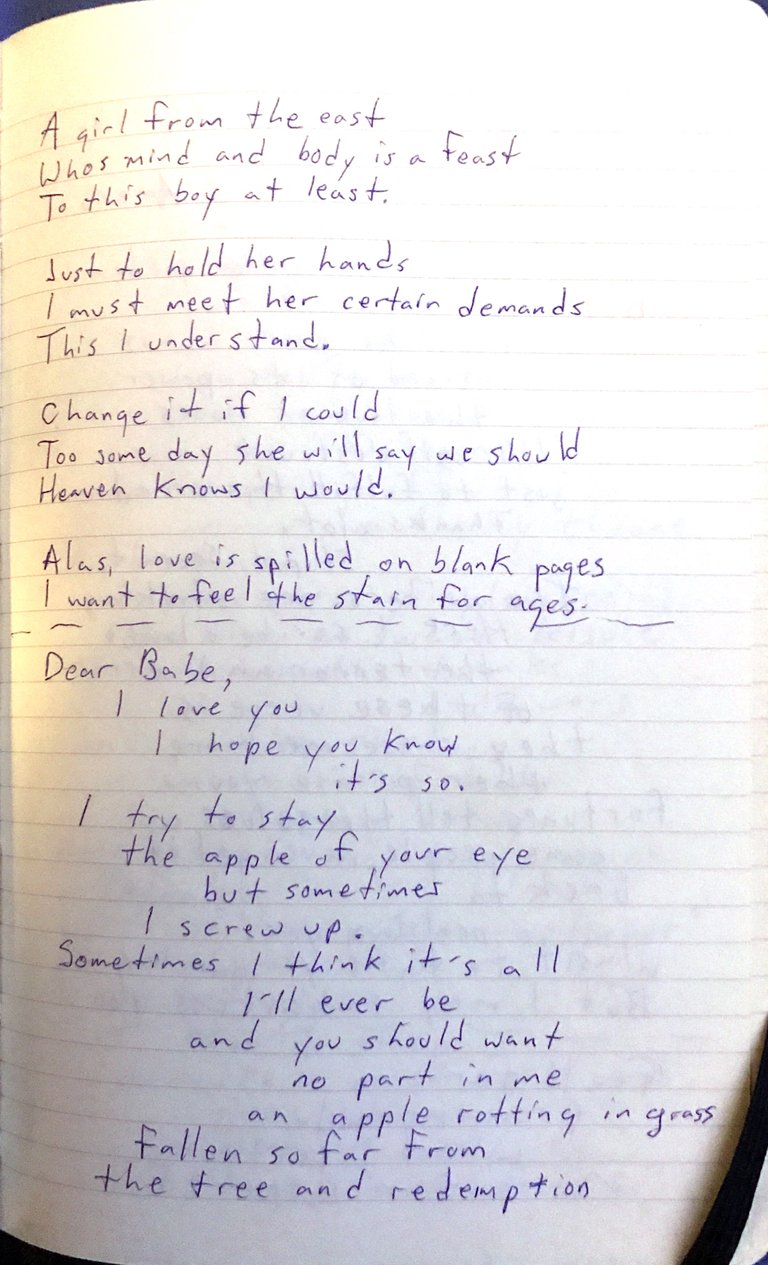 A girl from the east
Whos mind and body is a feast
To this boy at least.
Just to hold her hands
I must meet her certain demands
This I understand.
Change it if I could
Too some day she will say we should
Heaven knows I would.
Alas, love is spilled on blank pages
I want to feel the stain for ages.
Dear Babe,
I love you
I hope you know
it's so.
I try to stay
the apple of your eye
but sometimes
I screw up.
Sometimes I think it's all
I'll ever be
and you should want
no part in me
an apple rotting in grass
fallen so far from
the tree and redemption